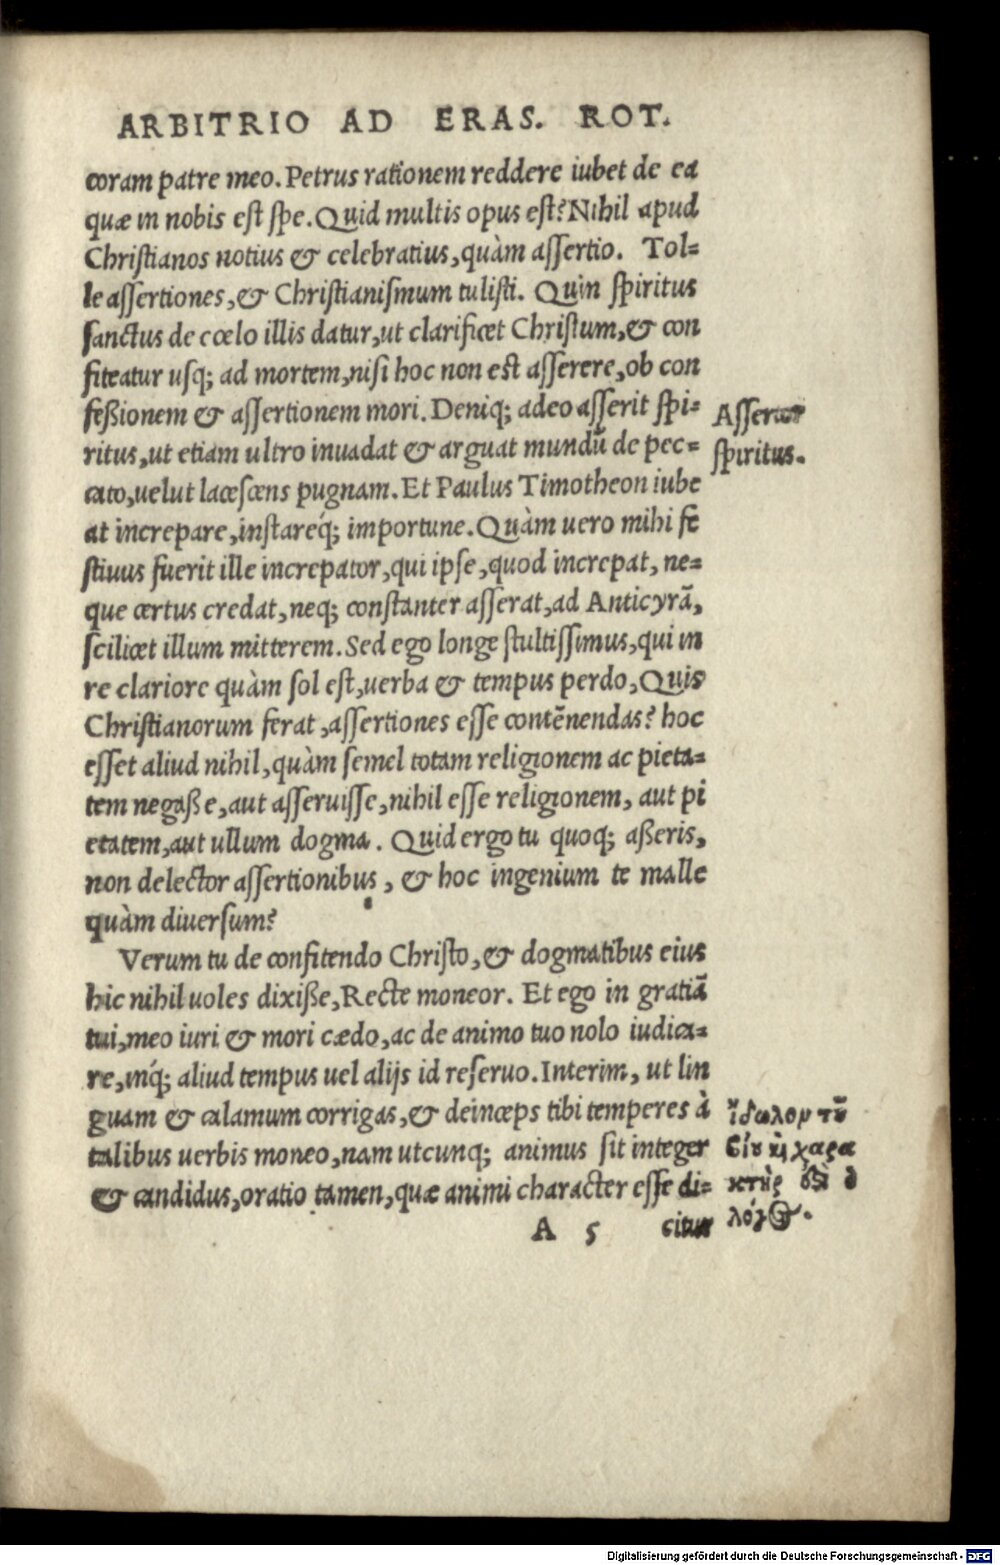 ARBITRIO AD ERAS. ROT.
coram patre meo. Petrus rationem reddere iubet de ea
quæ in nobis est spe. Quid multis opus est? Nihil apud
Christianos notius & celebratius, quàm assertio. Tol-
le assertiones, & Christianismum tulisti. Quin spiritus
sanctus de cœlo illis datur, ut clarificet Christum, & con
fiteatur usq; ad mortem, nisi hoc non est asserere, ob con
feßionem & assertionem mori. Deniq; adeo asserit spi-
ritus, ut etiam ultro inuadat & arguat mundū de pec-
cato, uelut lacescens pugnam. Et Paulus Timotheon iube
at increpare, instareq́; importune. Quàm uero mihi fe
stiuus fuerit ille increpator, qui ipse, quod increpat, ne-
que certus credat, neq; constanter asserat, ad Anticyrā,
scilicet illum mitterem. Sed ego longe stultissimus, qui in
re clariore quàm sol est, uerba & tempus perdo, Quis
Christianorum ferat, assertiones esse contēnendas? hoc
esset aliud nihil, quàm semel totam religionem ac pieta-
tem negaße, aut asseruisse, nihil esse religionem, aut pi
etatem, aut ullum dogma. Quid ergo tu quoq; aßeris,
non delector assertionibus, & hoc ingenium te malle
quàm diuersum?
Verum tu de confitendo Christo, & dogmatibus eius
hic nihil uoles dixiße, Recte moneor. Et ego in gratiā
tui, meo iuri & mori cædo, ac de animo tuo nolo iudica-
re, inq́; aliud tempus uel alijs id reseruo. Interim, ut lin
guam & calamum corrigas, & deinceps tibi temperes à
talibus uerbis moneo, nam utcunq; animus sit integer
& candidus, oratio tamen, quæ animi character esse di-
A 5 citur
Asserator
spiritus.
ἴδωλον τȣ͂
βίȣ ϗ χαρα
κτὴρ ὅδι ὁ
λόγος.